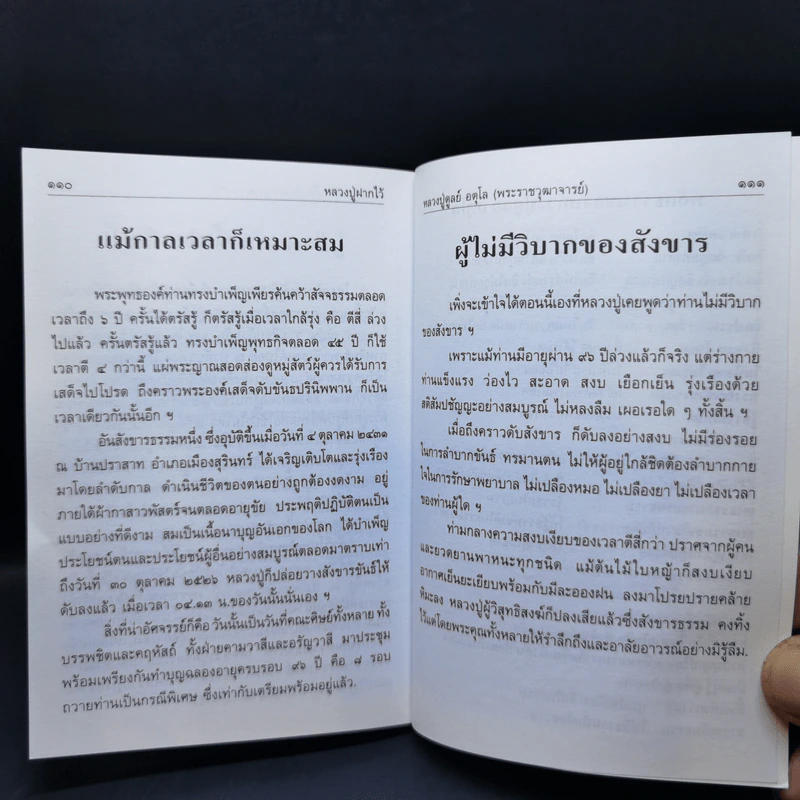 ๑๑๐
หลวงปู่ฝากไว้
แม้กาลเวลาก็เหมาะสม
พระพุทธองค์ท่านทรงบำเพ็ญเพียรค้นคว้าสัจจธรรมตลอด
เวลาถึง ๖ ปี ครั้นได้ตรัสรู้ ก็ตรัสรู้เมื่อเวลาใกล้รุ่ง คือ ตีสี่ ล่วง
ไปแล้ว ครั้นตรัสรู้แล้ว ทรงบำเพ็ญพุทธกิจตลอด ๔๕ ปี ก็ใช้
เวลาตี ๔ กว่านี้ แผ่พระญาณสอดส่องดูหมู่สัตว์ผู้ควรได้รับการ
เสด็จไปโปรด ถึงคราวพระองค์เสด็จดับขันธปรินิพพาน ก็เป็น
เวลาเดียวกันนั้นอีก ฯ
อันสังขารธรรมหนึ่ง ซึ่งอุบัติขึ้นเมื่อวันที่ ๔ ตุลาคม ๒๔๓๑
ณ บ้านปราสาท อำเภอเมืองสุรินทร์ ได้เจริญเติบโตและรุ่งเรือง
มาโดยลำดับกาล ดำเนินชีวิตของตนอย่างถูกต้องงดงาม อยู่
ภายใต้ผ้ากาสาวพัสตร์จนตลอดอายุขัย ประพฤติปฏิบัติตนเป็น
แบบอย่างที่ดีงาม สมเป็นเนื้อนาบุญอันเอกของโลก ได้บำเพ็ญ
ประโยชน์ตนและประโยชน์ผู้อื่นอย่างสมบูรณ์ตลอดมาตราบเท่า
ถึงวันที่ ๓๐ ตุลาคม ๒๕๒๖ หลวงปู่ก็ปล่อยวางสังขารขันธ์ให้
ดับลงแล้ว เมื่อเวลา ๐๔.๑๓ น.ของวันนั้นนั่นเอง ฯ
สิ่งที่น่าอัศจรรย์ก็คือ วันนั้นเป็นวันที่คณะศิษย์ทั้งหลาย ทั้ง
บรรพชิตและคฤหัสถ์ ทั้งฝ่ายคามวาสีและอรัญวาสี มาประชุม
พร้อมเพรียงกันทำบุญฉลองอายุครบรอบ ๙๖ ปี คือ ๘ รอบ
ถวายท่านเป็นกรณีพิเศษ ซึ่งเท่ากับเตรียมพร้อมอยู่แล้ว.
หลวงปู่ดูลย์ อตุโล (พระราชวุฒาจารย์)
๑๑๑
ผู้ไม่มีวิบากของสังขาร
เพิ่งจะเข้าใจได้ตอนนี้เองที่หลวงปู่เคยพูดว่าท่านไม่มีวิบาก
ของสังขาร ฯ
เพราะแม้ท่านมีอายุผ่าน ๙๖ ปีล่วงแล้วก็จริง แต่ร่างกาย
ท่านแข็งแรง ว่องไว สะอาด สงบ เยือกเย็น รุ่งเรืองด้วย
สติสัมปชัญญะอย่างสมบูรณ์ ไม่หลงลืม เผอเรอใด ๆ ทั้งสิ้น ฯ
เมื่อถึงคราวดับสังขาร ก็ดับลงอย่างสงบ ไม่มีร่องรอย
ในการลำบากขันธ์ ทรมานตน ไม่ให้ผู้อยู่ใกล้ชิดต้องลำบากกาย
ใจในการรักษาพยาบาล ไม่เปลืองหมอ ไม่เปลืองยา ไม่เปลืองเวลา
ของท่านผู้ใด ฯ
ท่ามกลางความสงบเงียบของเวลาตีสี่กว่า ปราศจากผู้คน
และยวดยานพาหนะทุกชนิด แม้ต้นไม้ใบหญ้าก็สงบเงียบ
อากาศเย็นยะเยียบพร้อมกับมีละอองฝน ลงมาโปรยปรายคล้าย
หิมะลง หลวงปู่ผู้วิสุทธิสงฆ์ก็ปลงเสียแล้วซึ่งสังขารธรรม คงทิ้ง
ไว้แต่โดยพระคุณทั้งหลายให้รำลึกถึงและอาลัยอาวรณ์อย่างมิรู้ลืม.